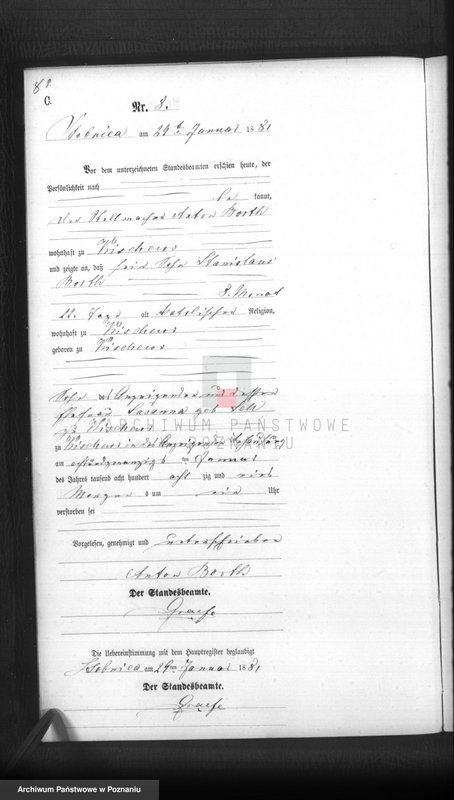 8.
C.
Nr. 8.
am 29 ten Januar 1881
Vor dem unterzeichneten Standesbeamten erschien heute, der
Persönlichkeit nach
be kannt,
der Stellmacher Anton Borth
wohnhaft zu
und zeigte an, daß sein Sohn Stanislaus
Borth
8. Monat
22. Tage alt katolischer Religion,
wohnhaft zu
geboren zu
Sohn des Anzeigenden und dessen
Ehefrau Susanna geb
zu
zu in des Anzeigenden
am achtundzwanzigsten Januar
des Jahres tausend acht hundert acht zig und eins
Morgens um ein Uhr
verstorben sei
Vorgelesen, genehmigt und unterschrieben
Anton Borth
Der Standesbeamte.
Graefe
Die Uebereinstimmung mit dem Hauptregister beglaubigt
am 29ten Januar 1881
Der Standesbeamte.
Graefe
ARCHIWUM PAŃSTWOWE
W POZNANIU
Archiwum Państwowe w Poznaniu